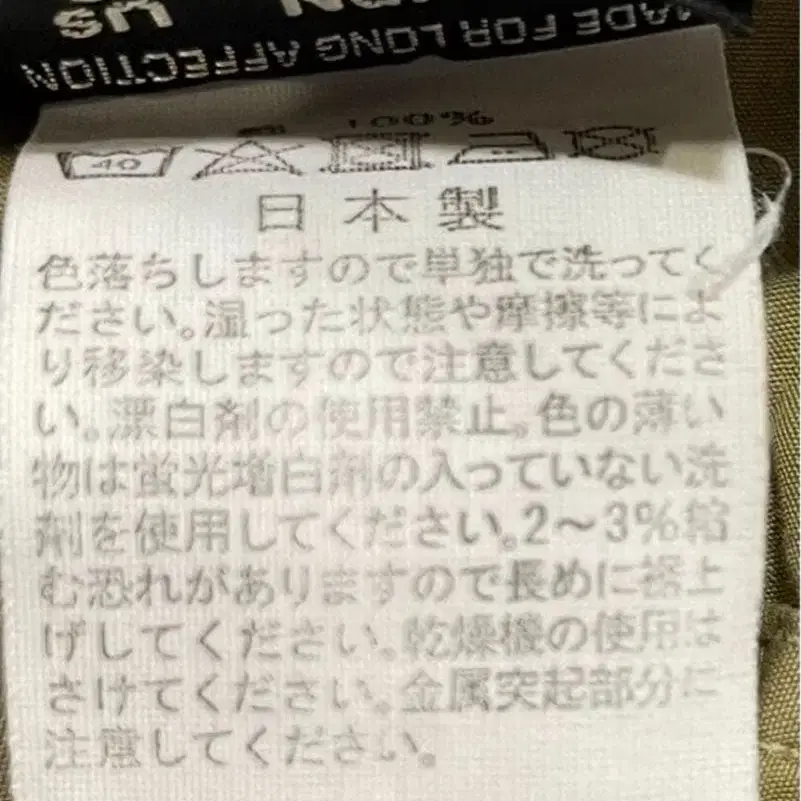 MADE FOR LONG AFFECTION
100%
40
日本製
色落ちしますので単独で洗ってく
ださい。湿った状態や摩擦等によ
り移染しますので注意してくださ
い。漂白剤の使用禁止。色の薄い
物は蛍光増白剤の入っていない洗
剤を使用してください。2〜3%縮
む恐れがありますので長めに裾上
げしてください。乾燥機の使用は
さけてください。金属突起部分に
注意してください。